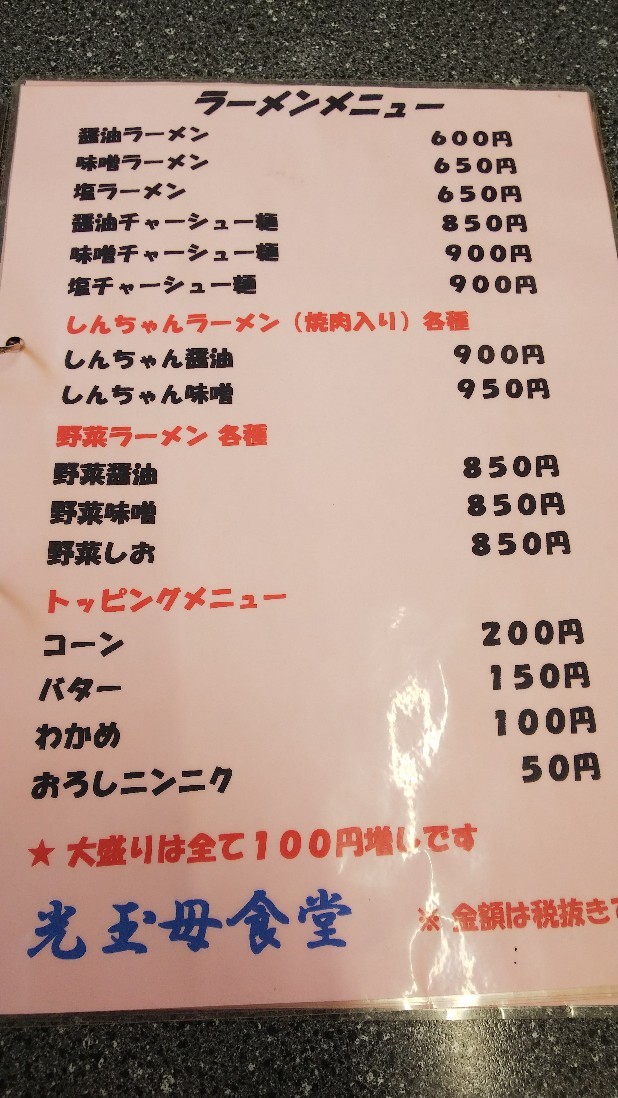 ラーメンメニュー
醤油ラーメン 600円
味噌ラーメン 650円
塩ラーメン 650円
醤油チャーシュー麺 850円
味噌チャーシュー麺 900円
塩チャーシュー麺 900円
しんちゃんラーメン（焼肉入り）各種
しんちゃん醤油 900円
しんちゃん味噌 950円
野菜ラーメン 各種
野菜醤油 850円
野菜味噌 850円
野菜しお 850円
トッピングメニュー
コーン 200円
バター 150円
わかめ 100円
おろしニンニク 50円
★ 大盛りは全て100円増しです
光玉母食堂
※ 金額は税抜きで